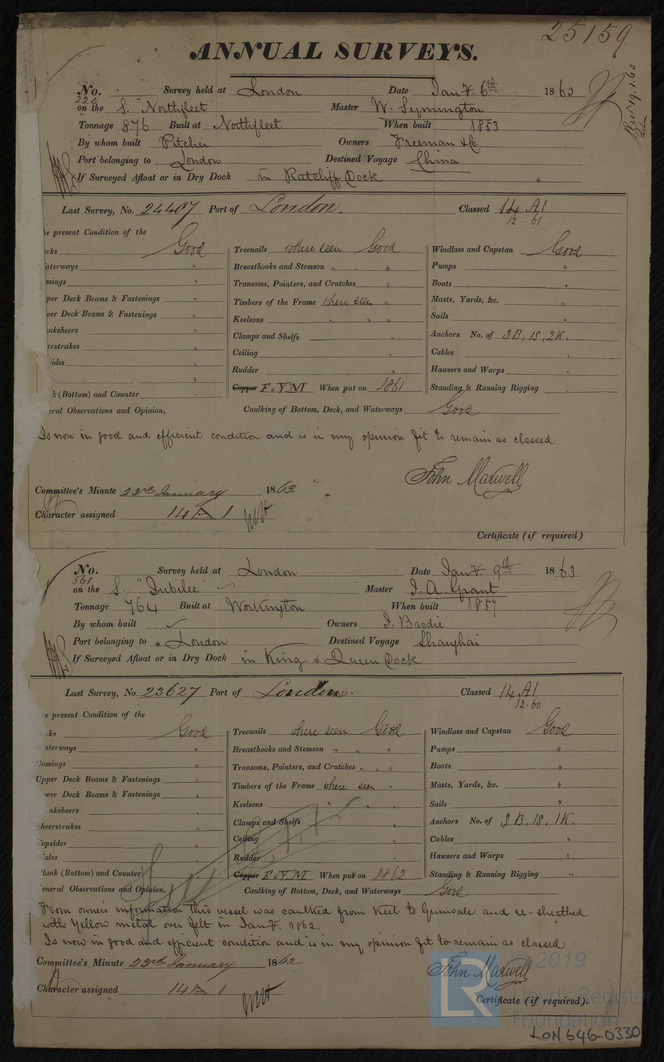 25159
ANNUAL SURVEYS.
No. 220 Survey held at London Date Jany 6th 1863
on the S. "Northfleet Master W. Symington
Tonnage 876 Built at Northfleet When built 1853
By whom built Pitcher Owners Freeman &Co
Port belonging to London Destined Voyage China
If Surveyed Afloat or in Dry Dock in Ratcliff Dock
Last Survey, No. 24407 Port of London. Classed 14 A1
12.61
e present Condition of the
cks Good Treenails where seen Good Windlass and Capstan Good
aterways " Breasthooks and Stemson " " Pumps "
mings " Transoms, Pointers, and Crutches " Boats "
per Deck Beams & Fastenings " Timbers of the Frame where seen " Masts, Yards, &c. "
wer Deck Beams & Fastenings " Keelsons " " Sails "
nksheers " Clamps and Shelfs " Anchors No. of 3B, 1S, 2K.
erstrakes " Ceiling " Cables "
ides " Rudder " Hawsers and Warps "
k (Bottom) and Counter Copper F.YM When put on 1861 Standing & Running Rigging "
eral Observations and Opinion, Caulking of Bottom, Deck, and Waterways Good
Is now in good and efficient condition and is in my opinion fit to remain as classed
John Maxwell
Committee's Minute 23rd January 1863
Character assigned 14A1
Certificate (if required)
No. 561 Survey held at London Date Jany 9th 1863
on the S. "Jubilee" Master J. A. Grant
Tonnage 764 Built at Workington When built 1857
By whom built Owners J. Brodie
Port belonging to London Destined Voyage Shanghai
If Surveyed Afloat or in Dry Dock in King & Queen Dock
Last Survey, No. 23627 Port of London. Classed 14 A1
12.60
e present Condition of the
cks Good Treenails where seen Good Windlass and Capstan Good
aterways " Breasthooks and Stemson " " Pumps "
Comings " Transoms, Pointers, and Crutches " " Boats "
Upper Deck Beams & Fastenings " Timbers of the Frame where seen " Masts, Yards, &c. "
wer Deck Beams & Fastenings " Keelsons " Sails "
nksheers " Clamps and Shelfs " Anchors No. of 3B, 1S, 1K.
heerstrakes " Ceiling " Cables "
opsides " Rudder " Hawsers and Warps "
Wales " Copper F.YM When put on 1862 Standing & Running Rigging "
lank (Bottom) and Counter "
eneral Observations and Opinion, Caulking of Bottom, Deck, and Waterways Good
From owners information this vessel was caulked from Keel to Gunwale and re-sheathed
with Yellow metal over felt in Jany 1862.
Is now in good and efficient condition and is in my opinion fit to remain as classed
Committee's Minute 23rd January 1863
John Maxwell
Character assigned 14A1
Certificate (if required).
LR
2019
Lloyd's Register
Foundation
LON646-0330